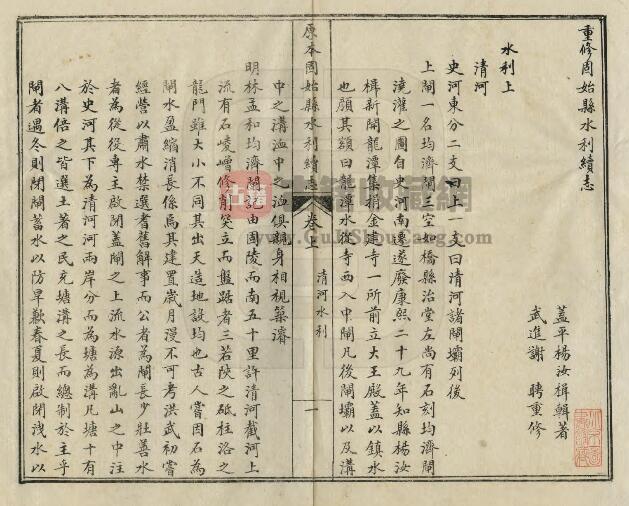 重修固始縣水利續志
蓋平楊汝楫輯著
武進謝 聘重修
水利上
清河
史河東分二支曰上一支曰清河諸閘壩列後
上閘一名均濟閘三空如橋縣治堂左尚有石刻均濟閘
澆灌之圖自史河南遷遂廢康熙二十九年知縣楊汝
楫新開龍潭集捐金建寺一所前立大王殿蓋以鎮水
也顏其額曰龍潭水從寺西入中閘凡後閘壩以及溝
原本固始縣水利續志
卷上
清河水利
一
中之溝洫中之洫俱親身相視築濬
明林孟和均濟閘記由固陵而南五十里許清河截河上
流有石崚嶒修削突立而盤踞者三若陝之砥柱洛之
龍門雖大小不同其出天造地設均也古人嘗因石為
閘水盈縮消長係焉其建置歲月漫不可考洪武初嘗
經營以肅水禁選耆舊解事而公者為閘長少壯善水
者為從役專主啟閉蓋閘之上流水源出亂山之中注
於史河其下為清河河兩岸分而為塘為溝凡塘十有
八溝倍之皆選土著之民充塘溝之長而總制於主乎
閘者遇冬則閉閘蓄水以防旱歉春夏則啟閉淺水以
古籍收藏網
www.GuJiShouCang.com